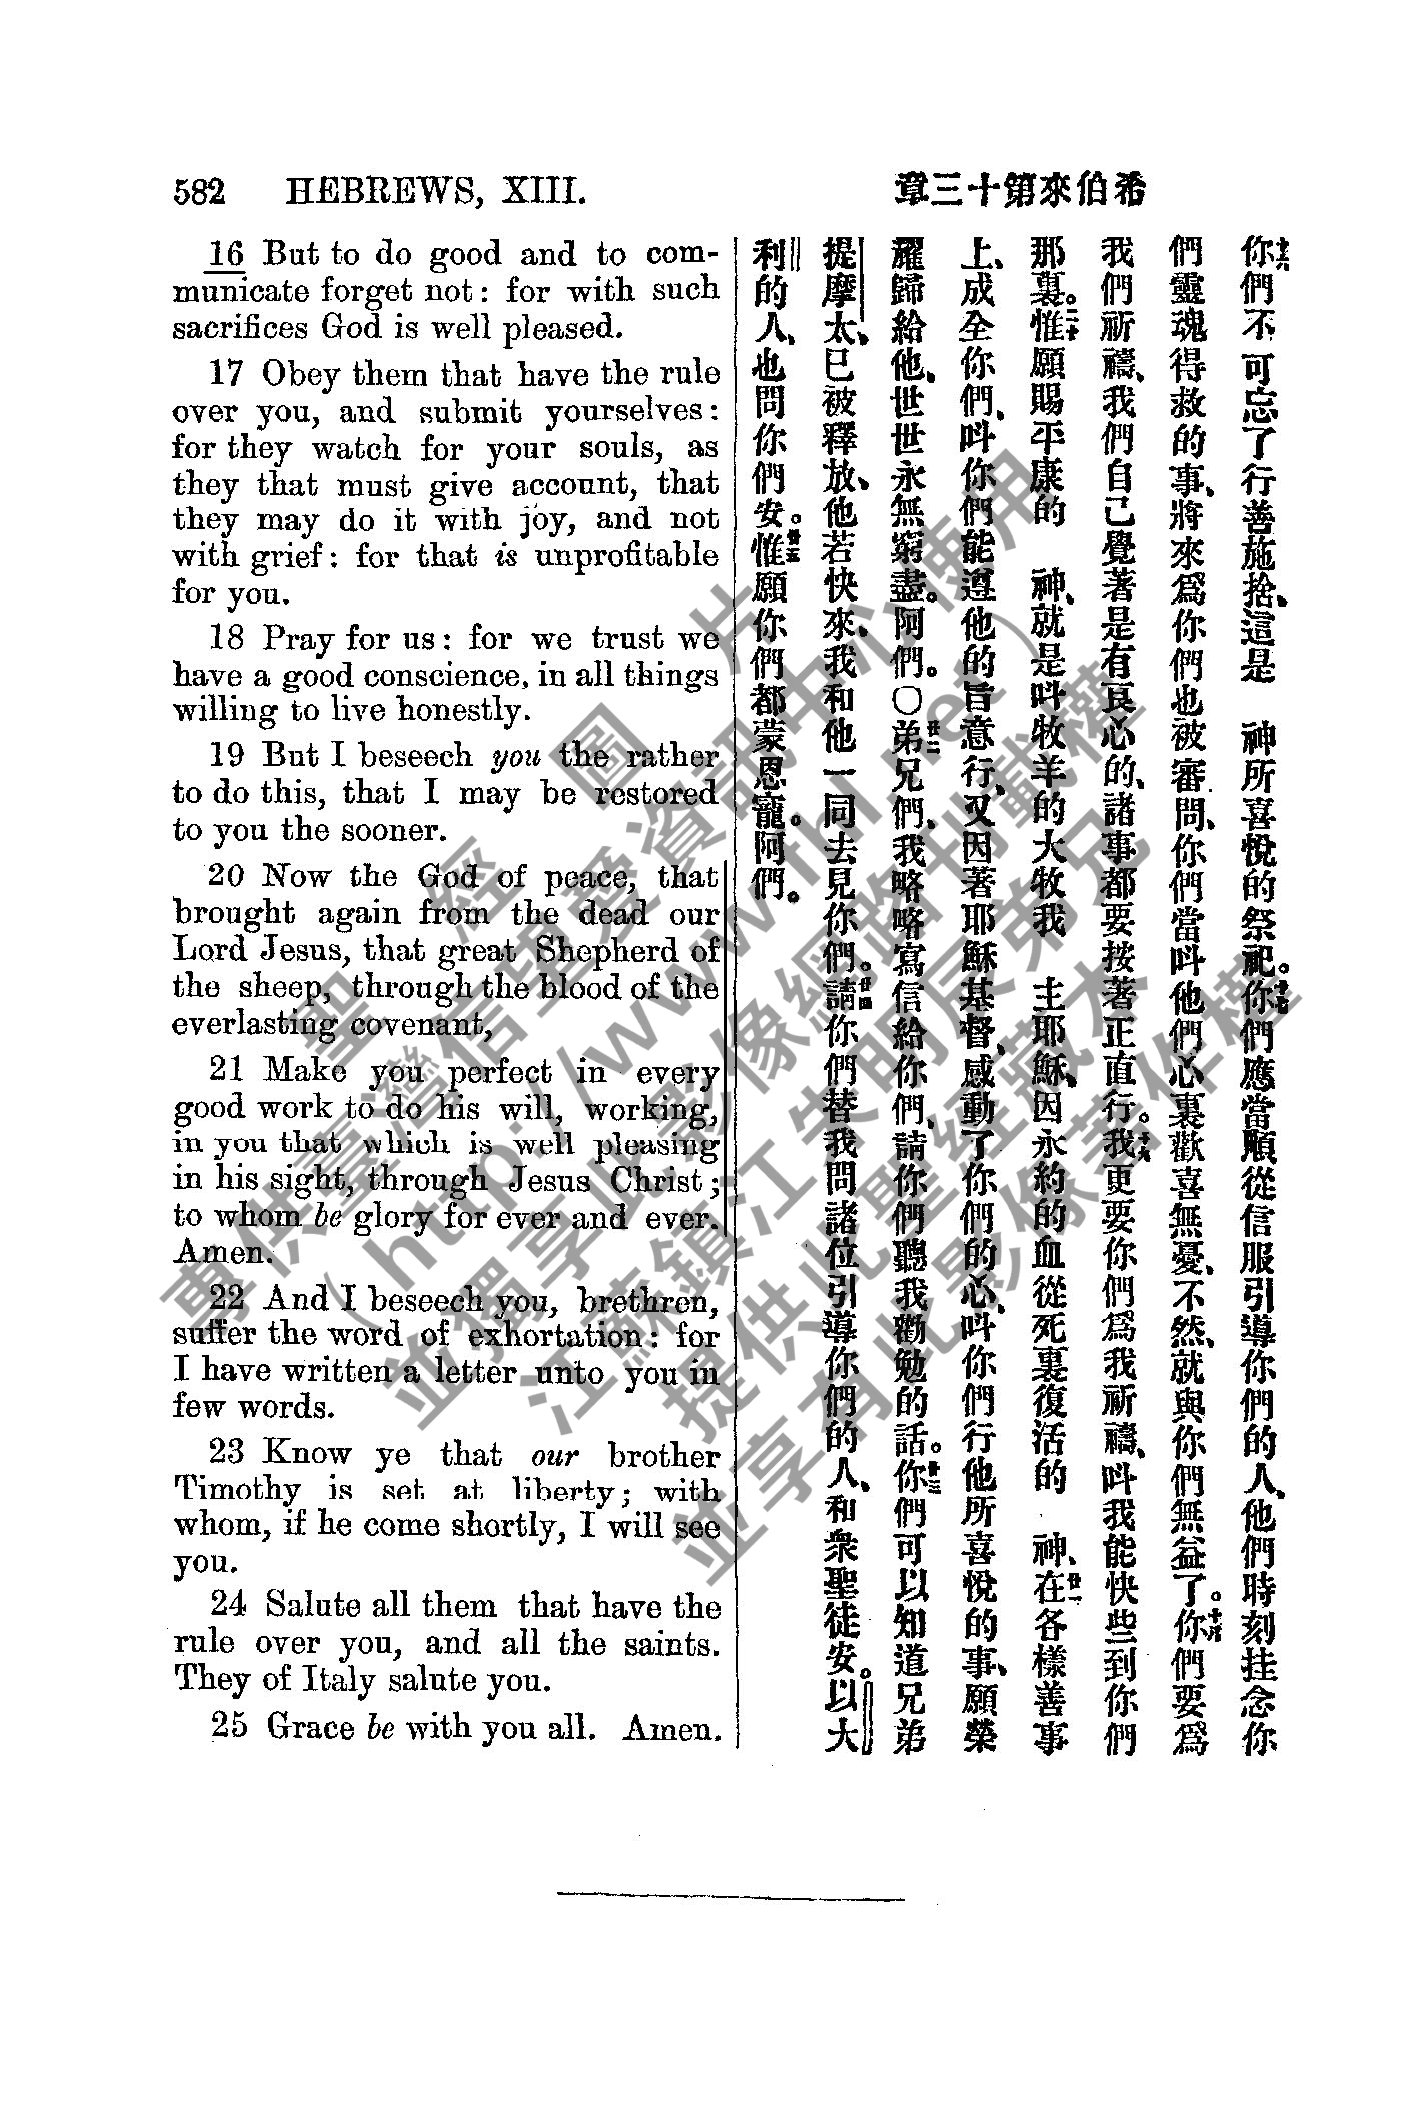 582 HEBREWS, XIII.
章三十第來伯希
16 But to do good and to com-
municate forget not: for with such
sacrifices God is well pleased.
17 Obey them that have the rule
over you, and submit yourselves:
for they watch for your souls, as
they that must give account, that
they may do it with joy, and not
with grief: for that is unprofitable
for you.
18 Pray for us: for we trust we
have a good conscience, in all things
willing to live honestly.
19 But I beseech you the rather
to do this, that I may be restored
to you the sooner.
20 Now the God of peace, that
brought again from the dead our
Lord Jesus, that great Shepherd of
the sheep, through the blood of the
everlasting covenant,
21 Make you perfect in every
good work to do his will, working,
in you that which is well pleasing
in his sight, through Jesus Christ;
to whom be glory for ever and ever.
Amen.
22 And I beseech you, brethren,
suffer the word of exhortation: for
I have written a letter unto you in
few words.
23 Know ye that our brother
Timothy is set at liberty; with
whom, if he come shortly, I will see
you.
24 Salute all them that have the
rule over you, and all the saints.
They of Italy salute you.
25 Grace be with you all. Amen.
十六你們不可忘了行善施捨、這是 神所喜悅的祭祀。十七你們應當順從信服引導你們的人、他們時刻挂念你
們靈魂得救的事、將來爲你們也被審問、你們當呌他們心裏歡喜無憂、不然、就與你們無益了。十八你們要爲
我們祈禱、我們自己覺著是有良心的、諸事都要按著正直行。十九我更要你們爲我祈禱、呌我能快些到你們
那裏。二十惟願賜平康的 神、就是呌牧羊的大牧我 主耶穌、因永約的血從死裏復活的 神、廿一在各樣善事
上、成全你們、呌你們能遵他的旨意行、又因著耶穌基督、感動了你們的心、呌你們行他所喜悅的事、願榮
耀歸給他、世世永無窮盡。阿們。〇廿二弟兄們、我略略寫信給你們、請你們聽我勸勉的話。廿三你們可以知道兄弟
提摩太、已被釋放、他若快來、我和他一同去見你們。廿四請你們替我問諸位引導你們的人、和衆聖徒安。以大
利的人、也問你們安。廿五惟願你們都蒙恩寵。阿們。
聖 經 圖 片
專供臺灣信望愛資訊中心使用
（http://www.fhl.net）
並獨享此影像網路刊載權
江蘇鎮江朱明辰弟兄
提供此聖經藏本
並享有此影像著作權